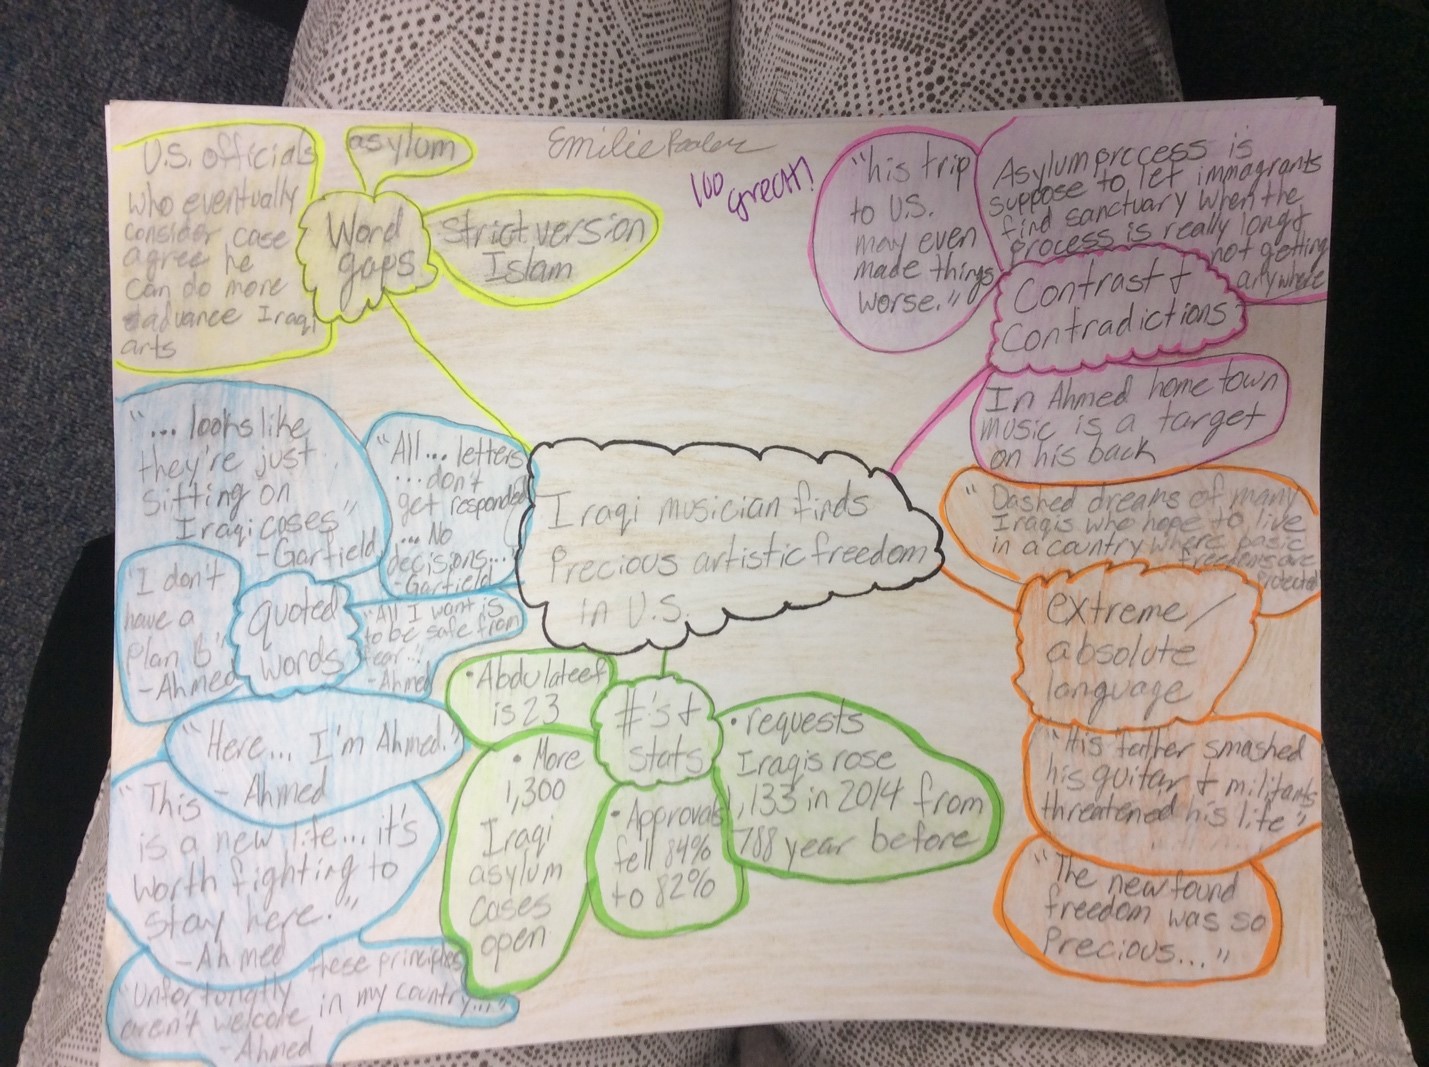 Emilie
100
great!
U.S. officials
who eventually
consider case
agree he
can do more
advance Iraqi
arts
asylum
Word
gaps
strict version
Islam
"his trip
to U.S.
may even
made things
worse."
Asylum process is
suppose to let immagrants
find sanctuary when the
process is really long &
not getting
anywhere
Contrast &
Contradictions
In Ahmed home town
music is a target
on his back
"... looks like
they're just
sitting on
Iraqi cases"
-Garfield
"All... letters
...don't
get responded
... No
decisions..."
-Garfield
"I don't
have a
plan B"
-Ahmed
quoted
words
"All I want is
to be safe from
fear..."
-Ahmed
"Here... I'm Ahmed."
- Ahmed
"This
is a new life... it's
worth fighting to
stay here."
-Ahmed
"Unfortunatly these principles
aren't welcote in my country..."
-Ahmed
Iraqi musician finds
Precious artistic freedom
in U.S.
• Abdulateef
is 23
#'s &
stats
• More
1,300
Iraqi
asylum
cases
open
• Approvals
fell 84%
to 82%
• requests
Iraqis rose
1,133 in 2014 from
788 year before
"Dashed dreams of many
Iraqis who hope to live
in a country where basic
freedoms are
protected
extreme/
absolute
language
"His father smashed
his guitar & militants
threatened his life"
"The new found
freedom was so
Precious..."